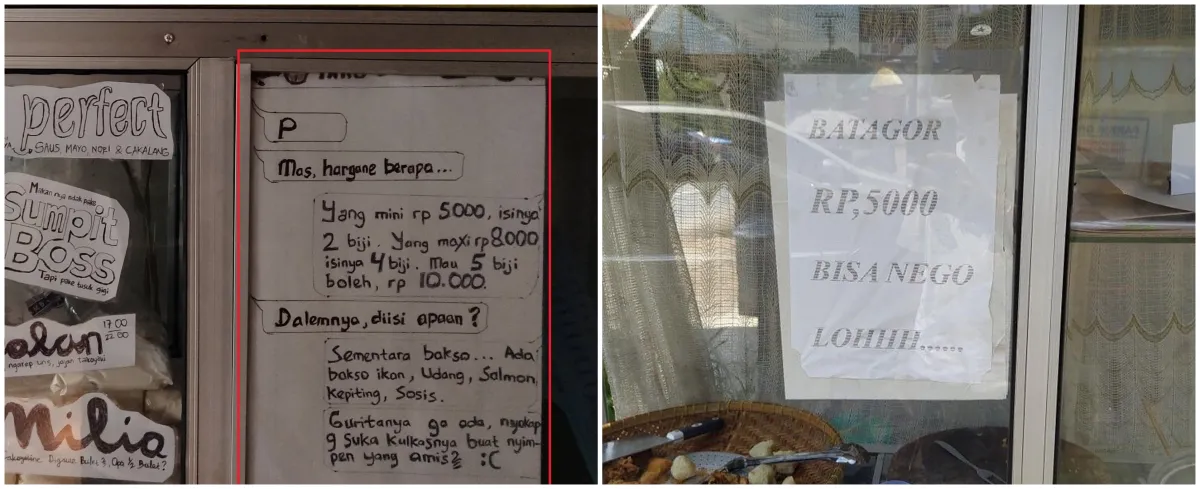 perfect
SAUS, MAYO, NORI & CAKALANG
Makan nya ndak pake
Sumpit
BOSS
Tapi pake tusuk gigi
alan
17.00
22.00
milia
P
Mas, hargane berapa...
Yang mini rp 5000, isinya
2 biji. Yang maxi rp 8.000,
isinya 4 biji. Mau 5 biji
boleh, rp 10.000.
Dalemnya, diisi apaan?
Sementara bakso... Ada
bakso ikan, Udang, Salmon,
Kepiting, Sosis.
Guritanya ga ada, nyokap
g suka kulkasnya buat nyim-
pen yang amis2 :C
BATAGOR
RP,5000
BISA NEGO
LOHHH......